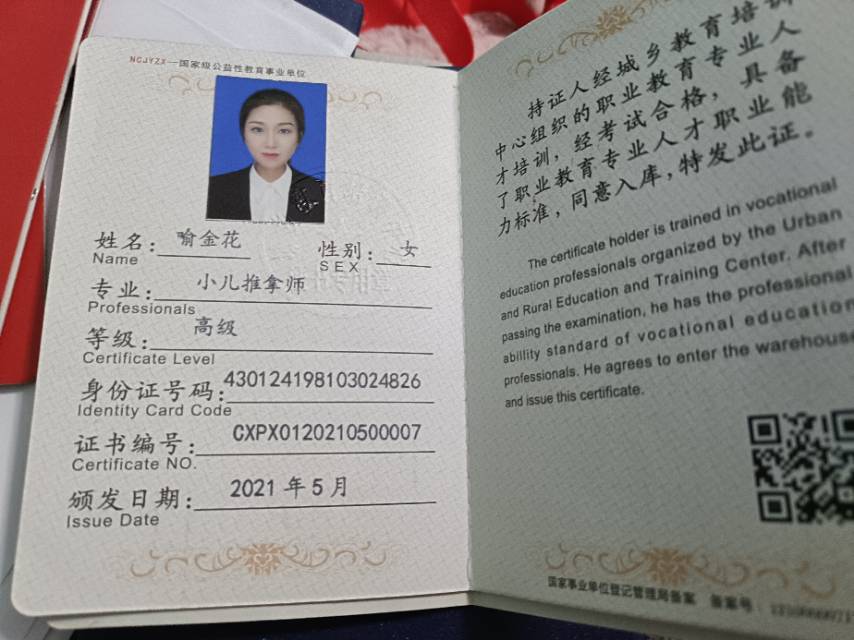 NCJYZX—国家级公益性教育事业单位
姓名：喻金花
Name
性别：女
SEX
专业：小儿推拿师
Professionals
等级：高级
Certificate Level
身份证号码：430124198103024826
Identity Card Code
证书编号：CXPX0120210500007
Certificate NO.
颁发日期：2021年5月
Issue Date
持证人经城乡教育培训
中心组织的职业教育专业人
才培训，经考试合格，具备
了职业教育专业人才职业能
力标准，同意入库，特发此证。
The certificate holder is trained in vocational
education professionals organized by the Urban
and Rural Education and Training Center. After
passing the examination, he has the professional
abillity standard of vocational education
professionals. He agrees to enter the warehouse
and issue this certificate.
国家事业单位登记管理局备案 备案号：